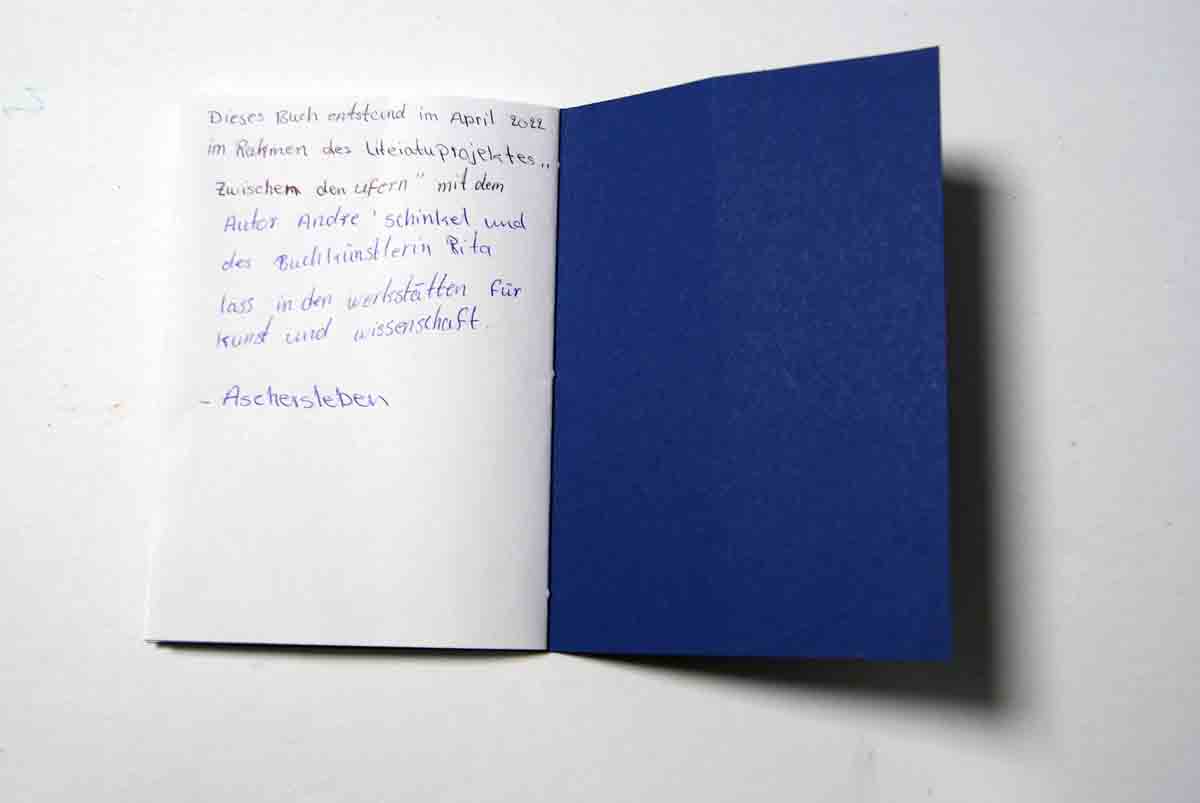 Dieses Buch entstand im April 2022
im Rahmen des Literatuprojektes „
Zwischen den ufern" mit dem
Autor Andre' schinkel und
des Buchkünstlerin Rita
lass in den werkstätten für
kunst und wissenschaft.
- Aschersleben